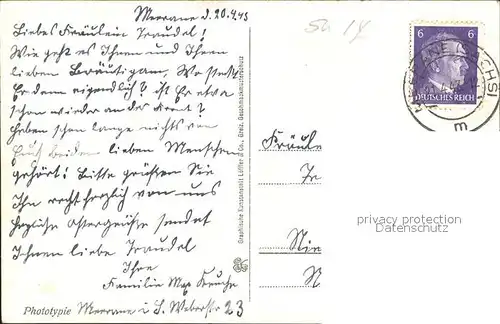 Meerane d. 20.4.43
Liebes Fräulein Traudel!
Wie geht es Ihnen und Ihrem
lieben Bräutigam, Wo steckt
Er denn eigendlich? ist Er etwa
schon wieder an der Front?
haben schon lange nichts von
Euch beiden lieben Menschen
gehört! Bitte grüßen Sie
Ihn recht herzlich von uns
herzliche Ostergrüße sendet
Ihnen liebe Traudel
Ihre
Familie Max
Meerane i. S. Weberstr 23
Phototypie
Graphische Kunstanstalt Löffler & Co., Greiz. Geschmacksmusterschutz
6 6
DEUTSCHES REICH
Fräule
Nie
privacy protection
Datenschutz